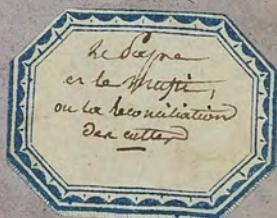 Le Pape
et le Mufti,
ou la réconciliation
des cultes